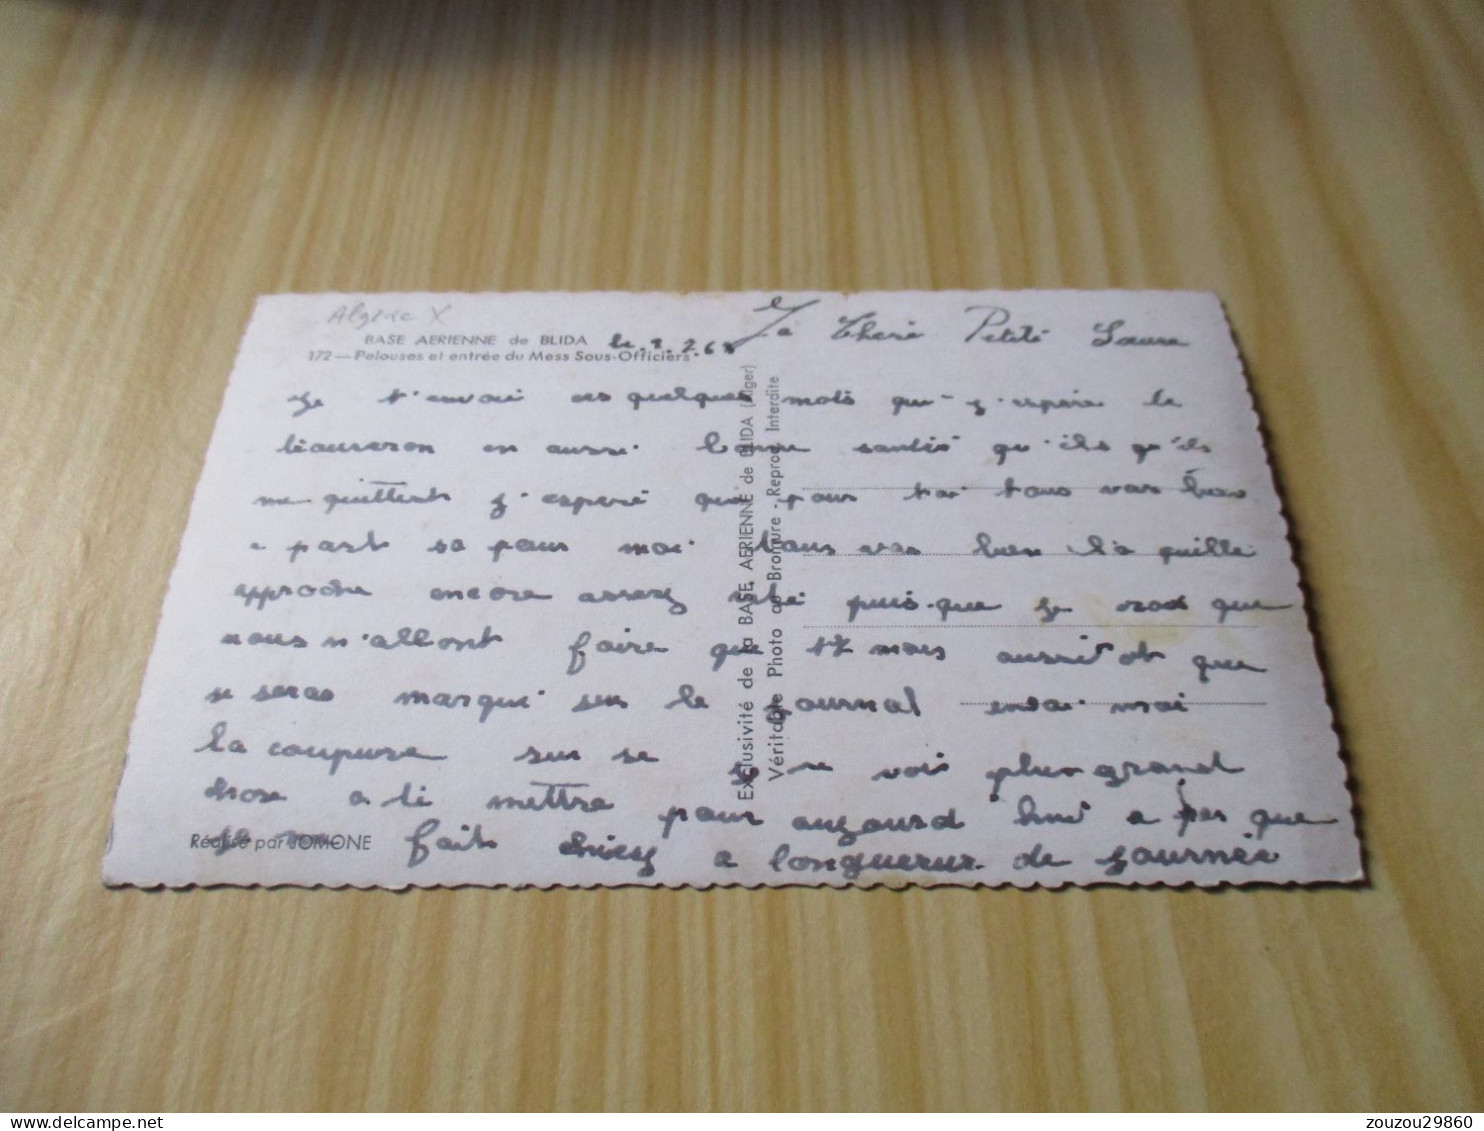 Algérie X
BASE AERIENNE de BLIDA
172 — Pelouses et entrée du Mess Sous-Officiers.
le
Cheré Petite Soeure
Je t'envoi ces quelques mots que j'espère te
en aussi bonne santé qu'ils
me quittent j'esperé que pour toi tous vas bien
a part sa pour moi tous vas bien la quille
approche encore assez vite puis-que je crois que
nous n'allont faire que 17 mois aussitot que
se seras marqué sur le journal envoi moi
la coupure sur se je ne vois plus grand
chose a ti mettre pour aujourd'hui a per que
je fait chiez a longueure de journée
Réalisé par JOMONE
Exclusivité de la BASE AERIENNE de BLIDA (Alger)
Véritable Photo au Bromure - Reprod. Interdite
zouzou29860